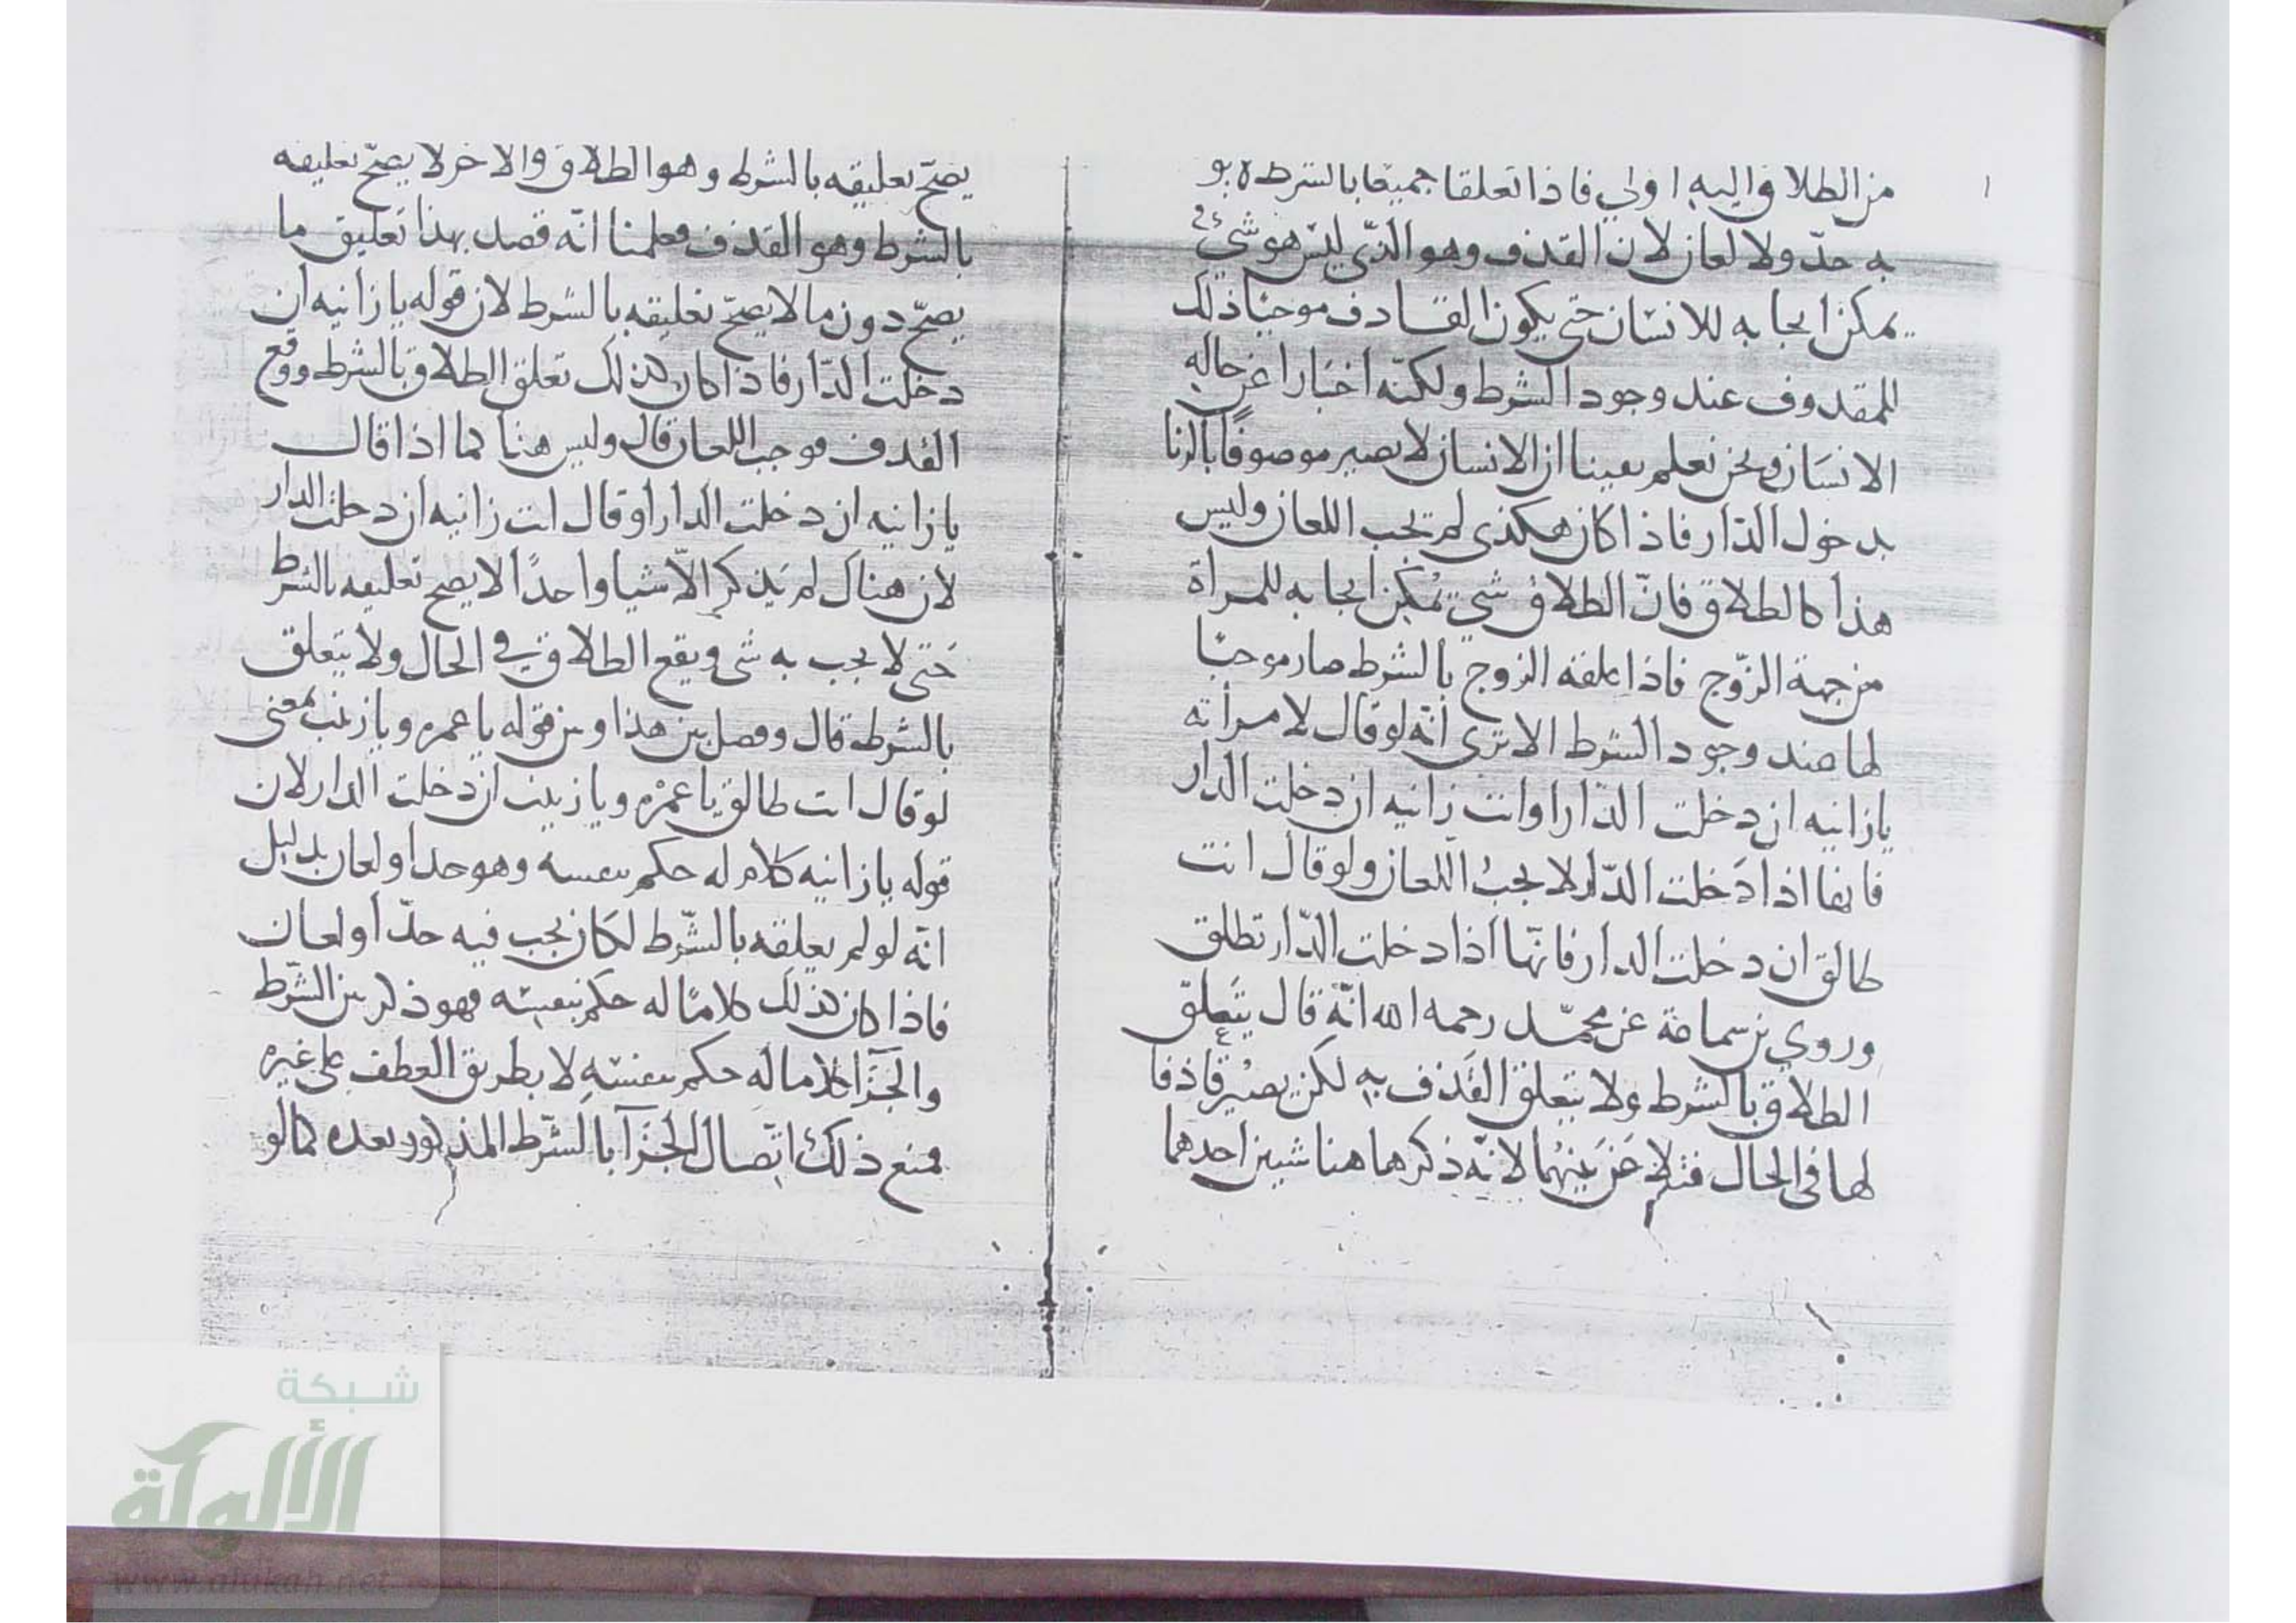 من الطلاق واليه اولي فاذا تعلقا جميعا بالشرط
به حدّ ولا لعان لان القذف وهو الذي ليس هو شيء
يمكن ايجابه للانسان حتى يكون القاذف موجبا ذلك
للمقذوف عند وجود الشرط ولكنّه اخبارا عن حاله
الانسان ونحن نعلم يقينا ان الانسان لا يصير موصوفًا بالزنا
بدخول الدّار فاذا كان هكذى لم تجب اللعان وليس
هذا كالطلاق فانّ الطلاق شي يُمكن ايجابه للمرأة
من جهة الزّوج فاذا علقه الزوج بالشرط صار موجبًا
لها عند وجود الشرط الا ترى انّه لو قال لامرأته
يازانيه ان دخلت الدّار او انت زانيه ان دخلت الدار
فانها اذا دَخلت الدّار لا يجبُ اللعان ولو قال انت
طالق ان دخلت الدار فانّها اذا دخلت الدّار تطلق
وروي بن سماعة عن محمّد رحمه الله انّه قال يتعلق
الطلاق بالشرط ولا يتعلق القَذف به لكن يصير قاذفا
لها في الحال فتلاعن بينهُما لانّه ذكر هاهنا شيين احدهما
يصحّ تعليقه بالشرط وهو الطلاق والاخر لا يصحّ تعليقه
بالشرط وهو القذف فعلمنا انّه قصد بهذا تعليق ما
يصحّ دون ما لا يصحّ تعليقه بالشرط لان قوله يازانيه ان
دخلت الدّار فاذا كان كذلك تعلق الطلاق بالشرط ووقع
القذف موجب اللعان قال وليس هنا كما اذا قال
يازانيه ان دخلت الدار او قال انت زانيه ان دخلت الدار
لان هناك لم يَذكر الّا شيا واحدًا لا يصح تعليقه بالشرط
حَتى لا يجب به شى ويقع الطلاق في الحال ولا يتعلق
بالشرط قال وفصل بين هذا وبين قوله ياعمره ويازينب بمعنى
لو قال انت طالق ياعمْره ويازينب ان دخلت الدار لان
قوله يازانيه كلام له حكم بنفسه وهو حد او لعان بدليل
انّه لو لم يعلقه بالشّرط لكَان يجب فيه حدّ او لعان
فاذا كان كذلك كلامًا له حكم بنفسه فهو ذكر بين الشّرط
والجَزَآ كلاما له حكم بنفسهِ لا بطريق العطف على غيره
فمنع ذلك اتّصال الجَزَآ بالشّرط المذكور بعده كما لو
شبكة
الألوكة
www.alukah.net